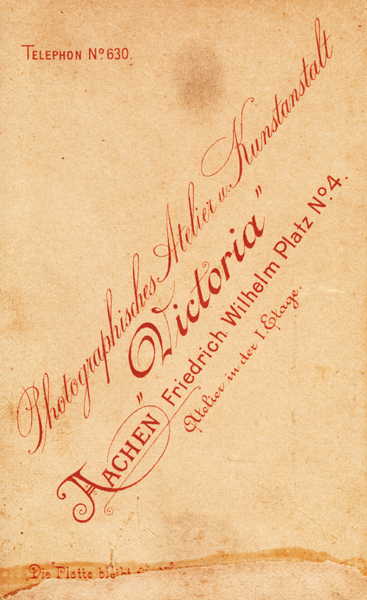 TELEPHON No 630.
Photographisches Atelier u. Kunstanstalt
„Victoria"
AACHEN Friedrich Wilhelm Platz No 4.
Atelier in der I. Etage.
Die Platte bleibt